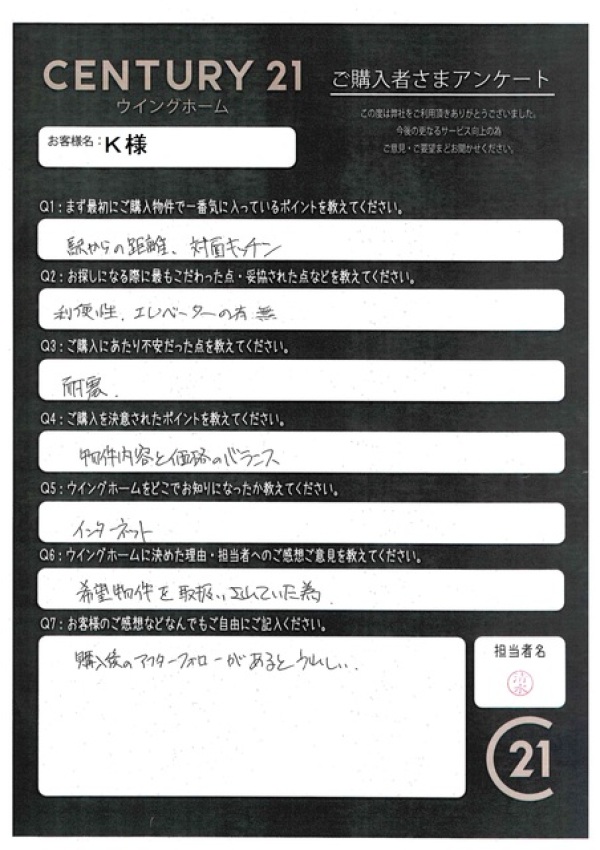 CENTURY 21
ウイングホーム
ご購入者さまアンケート
この度は弊社をご利用頂きありがとうございました。
今後の更なるサービス向上の為
ご意見・ご要望をお聞かせください。
お客様名：K様
Q1：まず最初にご購入物件で一番気に入っているポイントを教えてください。
駅からの距離、対面キッチン
Q2：お探しになる際に最もこだわった点・妥協された点などを教えてください。
利便性、エレベーターの有無
Q3：ご購入にあたり不安だった点を教えてください。
耐震.
Q4：ご購入を決意されたポイントを教えてください。
物件内容と価格のバランス
Q5：ウイングホームをどこでお知りになったか教えてください。
インターネット
Q6：ウイングホームに決めた理由・担当者へのご感想ご意見を教えてください。
希望物件を取扱いしていた為
Q7：お客様のご感想などなんでもご自由にご記入ください。
購入後のアフターフォローがあるとうれしい.
担当者名
清水
C21